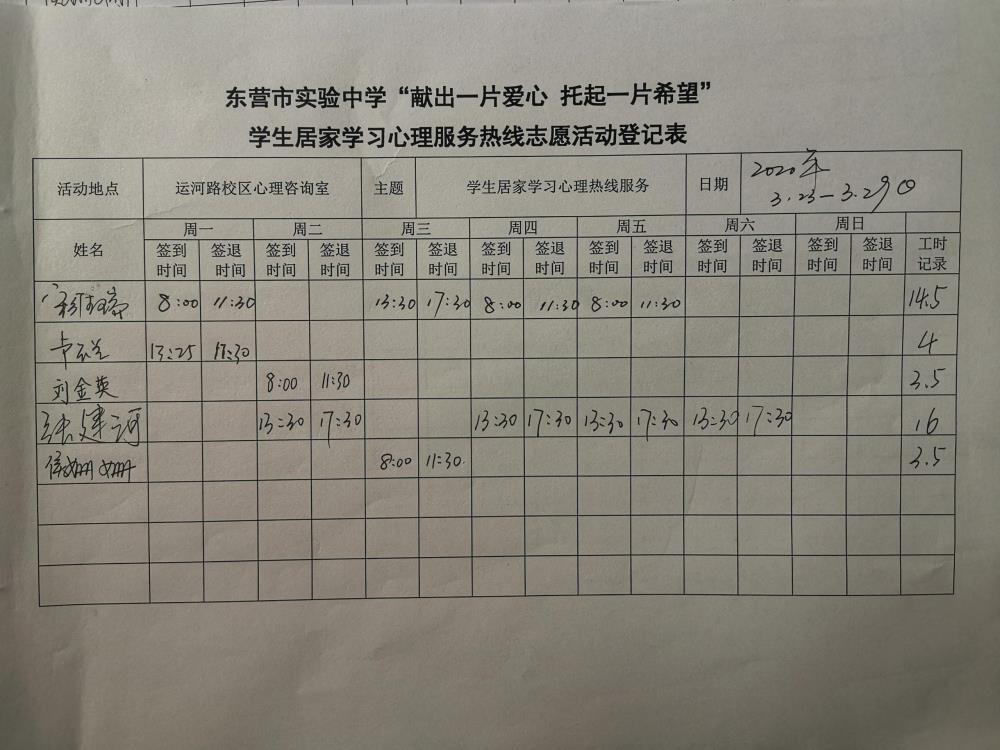 东营市实验中学“献出一片爱心 托起一片希望”
学生居家学习心理服务热线志愿活动登记表
活动地点 运河路校区心理咨询室 主题 学生居家学习心理热线服务 日期 2020年
3.23—3.29日
姓名 周一 周二 周三 周四 周五 周六 周日
签到 签退 签到 签退 签到 签退 签到 签退 签到 签退 签到 签退 签到 签退 工时
时间 时间 时间 时间 时间 时间 时间 时间 时间 时间 时间 时间 时间 时间 记录
8:00 11:30 13:30 17:30 8:00 11:30 8:00 11:30 14.5
13:25 17:30 4
刘金英 8:00 11:30 3.5
张建河 13:30 17:30 13:30 17:30 13:30 17:30 13:30 17:30 16
侯姗姗 8:00 11:30 3.5